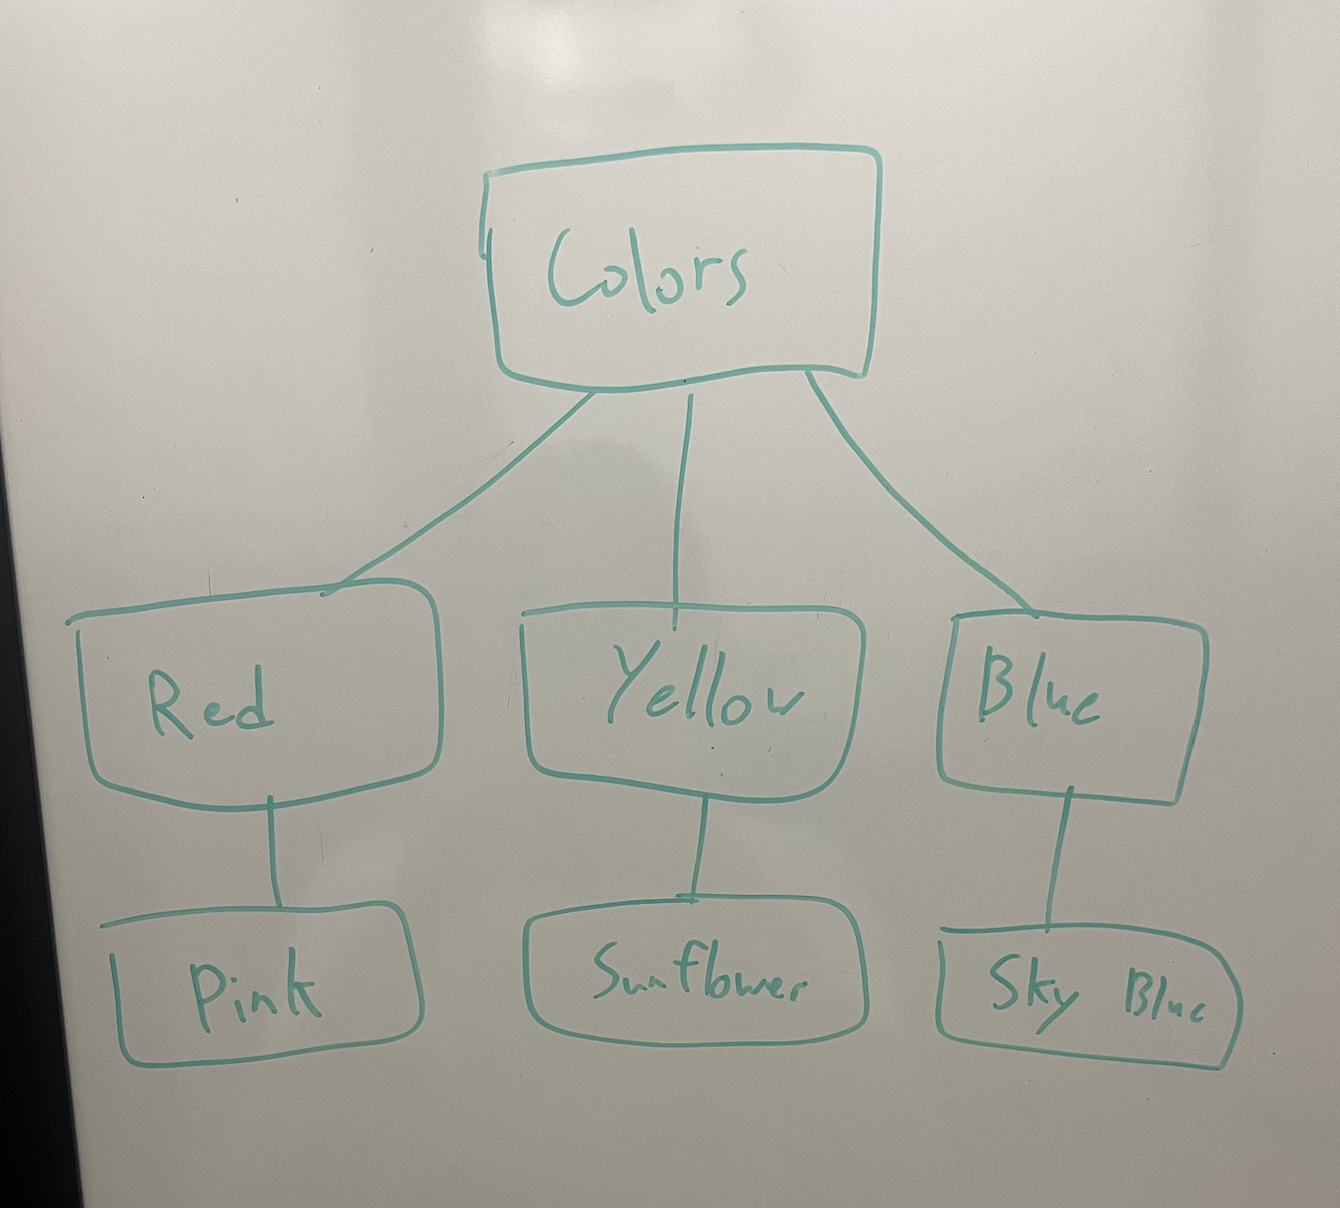 Colors
Red Yellow Blue
Pink Sunflower Sky Blue